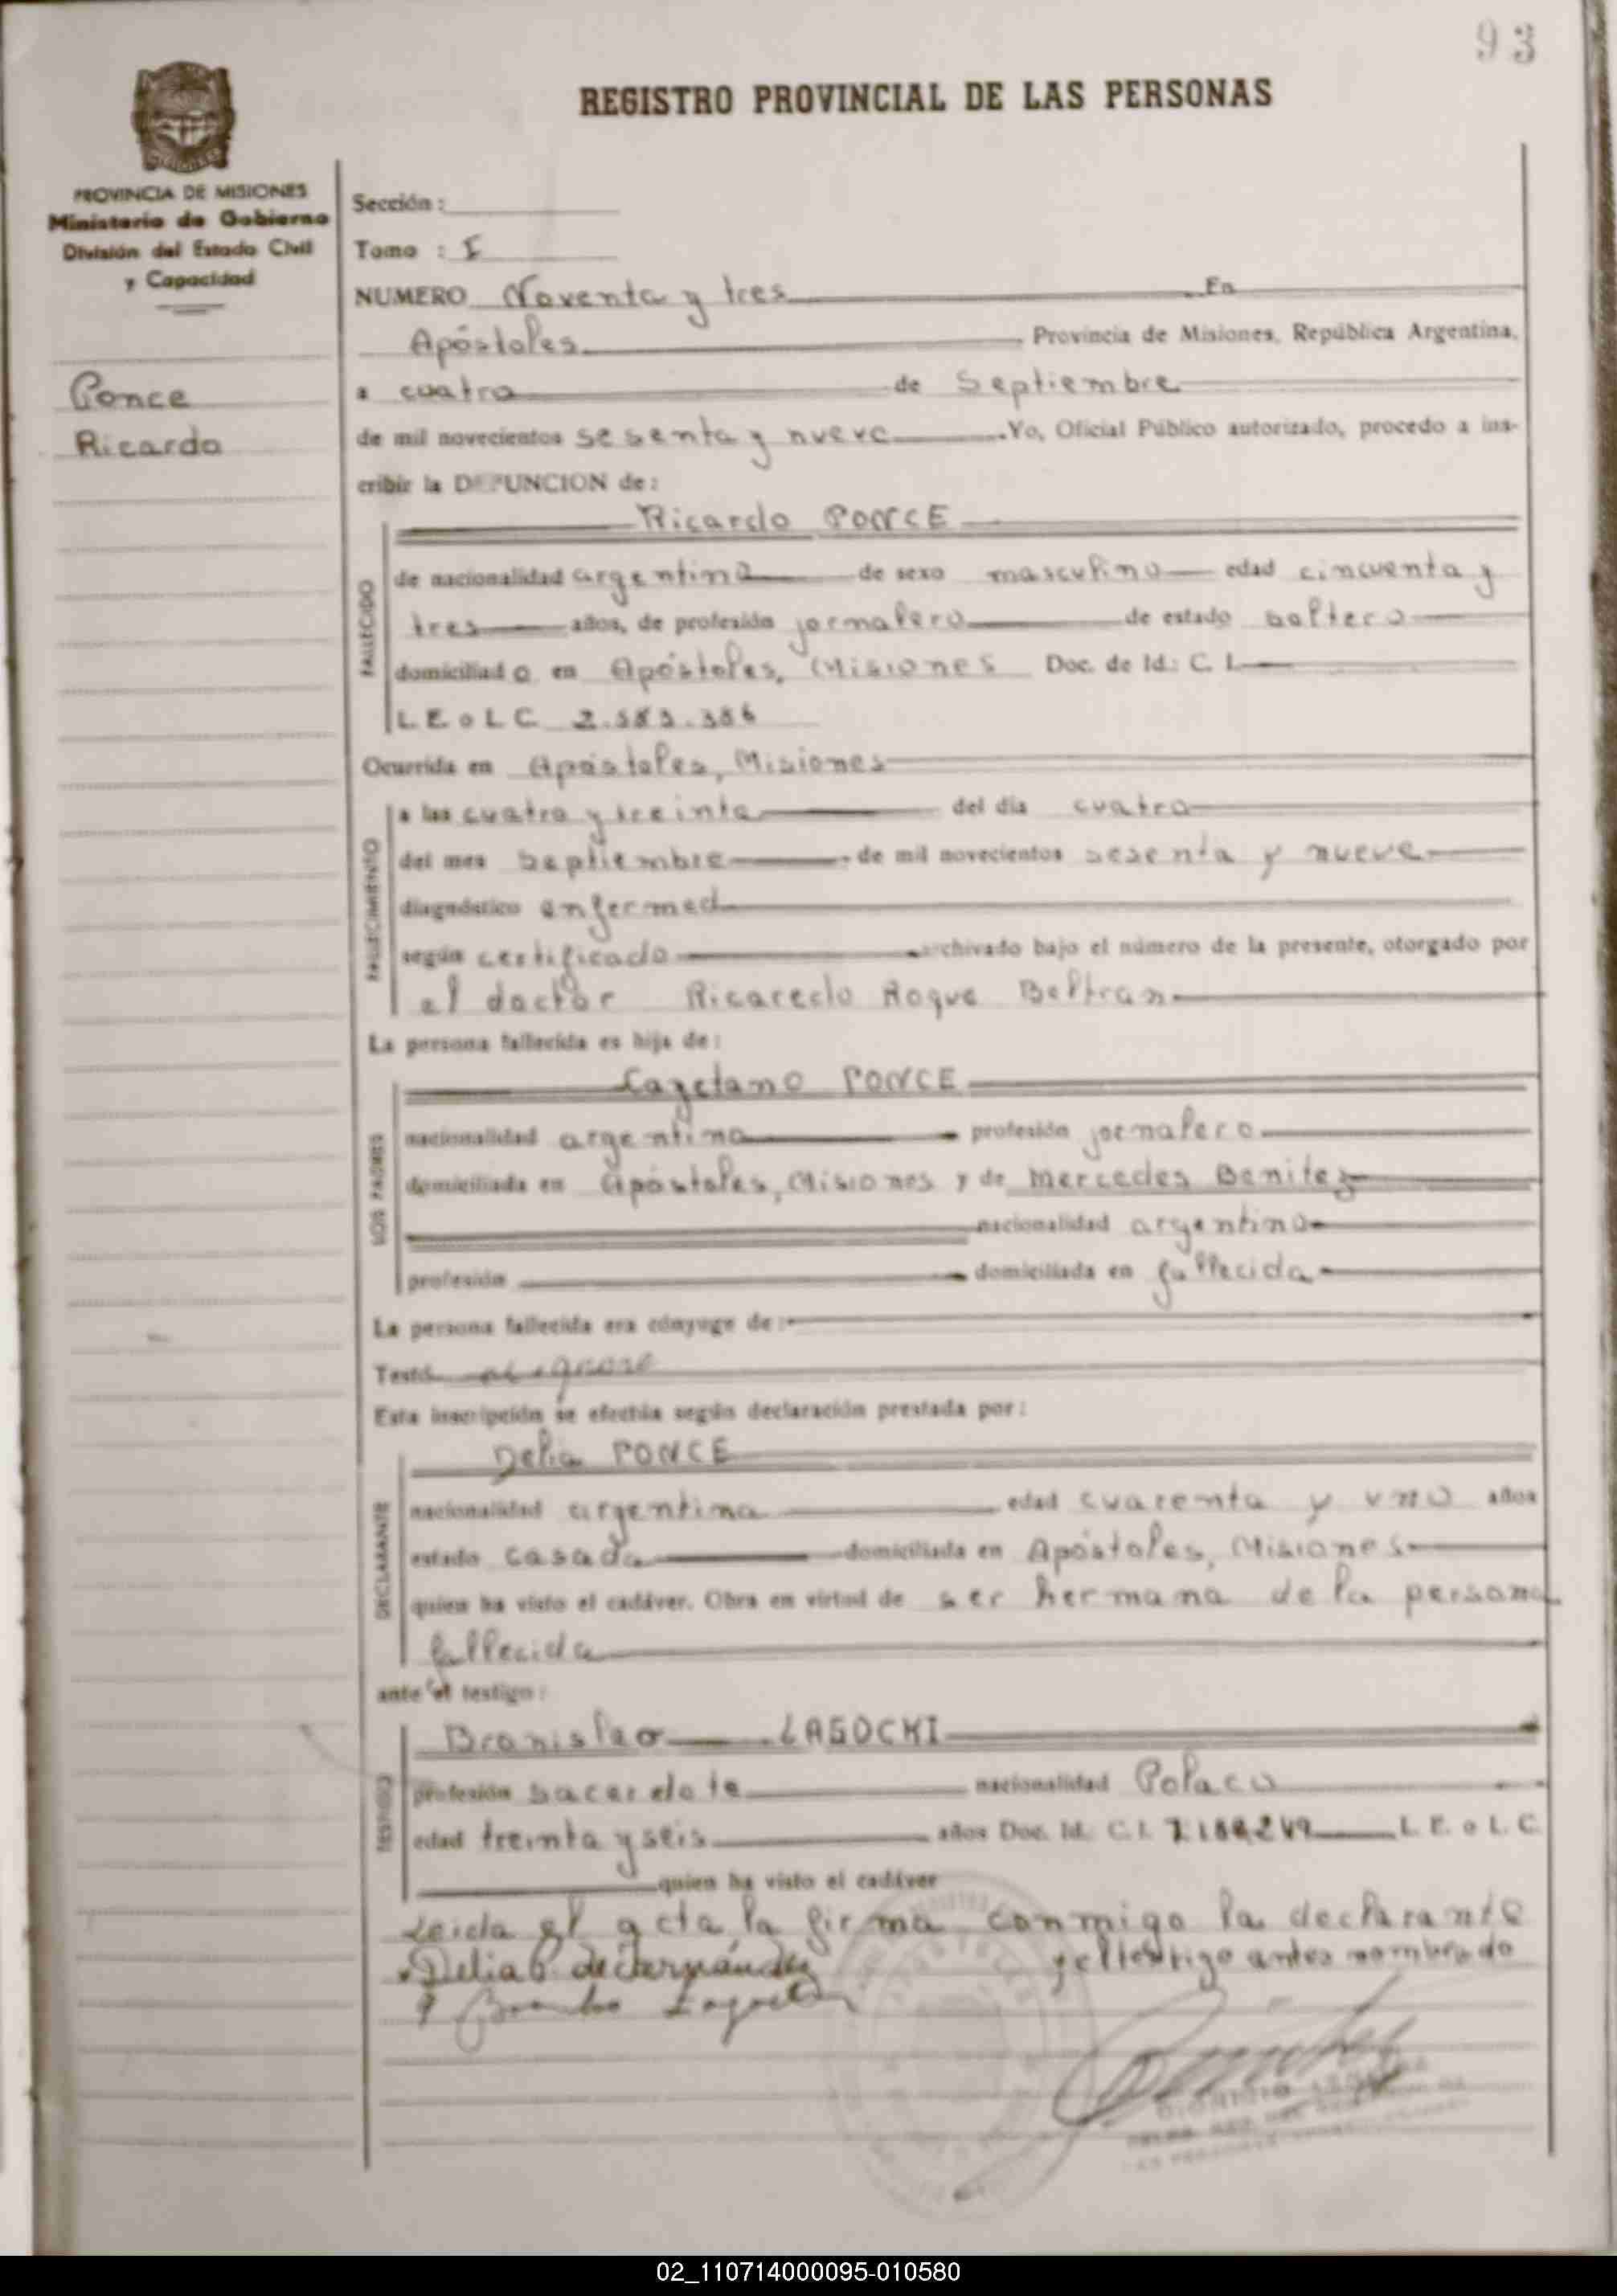 93
REGISTRO PROVINCIAL DE LAS PERSONAS
PROVINCIA DE MISIONES
Ministerio de Gobierno
División del Estado Civil
y Capacidad
Ponce
Ricardo
Sección:
Tomo : I
NUMERO Noventa y tres En
Apóstoles Provincia de Misiones, República Argentina,
a cuatro de Septiembre
de mil novecientos sesenta y nueve Yo, Oficial Público autorizado, procedo a ins-
cribir la DEFUNCION de:
Ricardo PONCE
FALLECIDO
de nacionalidad argentina de sexo masculino edad cincuenta y
tres años, de profesión jornalero de estado soltero
domiciliado en Apóstoles, Misiones Doc. de Id.: C. I.
L E o L C 2.583.386
Ocurrida en Apóstoles, Misiones
FALLECIMIENTO
a las cuatro y treinta del día cuatro
del mes Septiembre de mil novecientos sesenta y nueve
diagnóstico enfermed
según certificado archivado bajo el número de la presente, otorgado por
el doctor Ricaredo Roque Beltran
La persona fallecida es hija de:
Cayetano PONCE
LOS PADRES
nacionalidad argentina profesión jornalero
domiciliada en Apóstoles, Misiones y de Mercedes Benitez
nacionalidad argentina
profesión domiciliada en fallecida
La persona fallecida era cónyuge de:
Testó se ignora
Esta inscripción se efectúa según declaración prestada por:
Delia PONCE
DECLARANTE
nacionalidad argentina edad cuarenta y uno años
estado casada domiciliada en Apóstoles, Misiones
quien ha visto el cadáver. Obra en virtud de ser hermana de la persona
fallecida
ante el testigo:
Bronislao LAGOCKI
TESTIGO
profesión sacerdote nacionalidad Polaco
edad treinta y seis años Doc. Id. C. I. 7.189.249 L. E. o L. C.
quien ha visto el cadáver
Leida el acta, la firma conmigo la declarante
y el testigo antes nombrado
Delia P. de Fernández
02_110714000095-010580